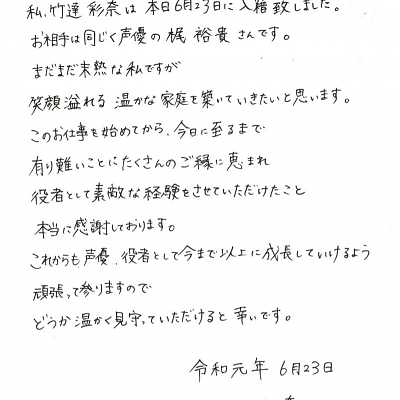 私、竹達 彩奈は 本日6月23日に入籍致しました。
お相手は同じく声優の 梶 裕貴さんです。
まだまだ未熟な私ですが
笑顔溢れる 温かな家庭を築いていきたいと思います。
このお仕事を始めてから、今日に至るまで
有り難いことにたくさんのご縁に恵まれ
役者として素敵な経験をさせていただけたこと
本当に感謝しております。
これからも声優、役者として今まで以上に成長していけるよう
頑張って参りますので
どうか温かく見守っていただけると 幸いです。
令和元年 6月23日